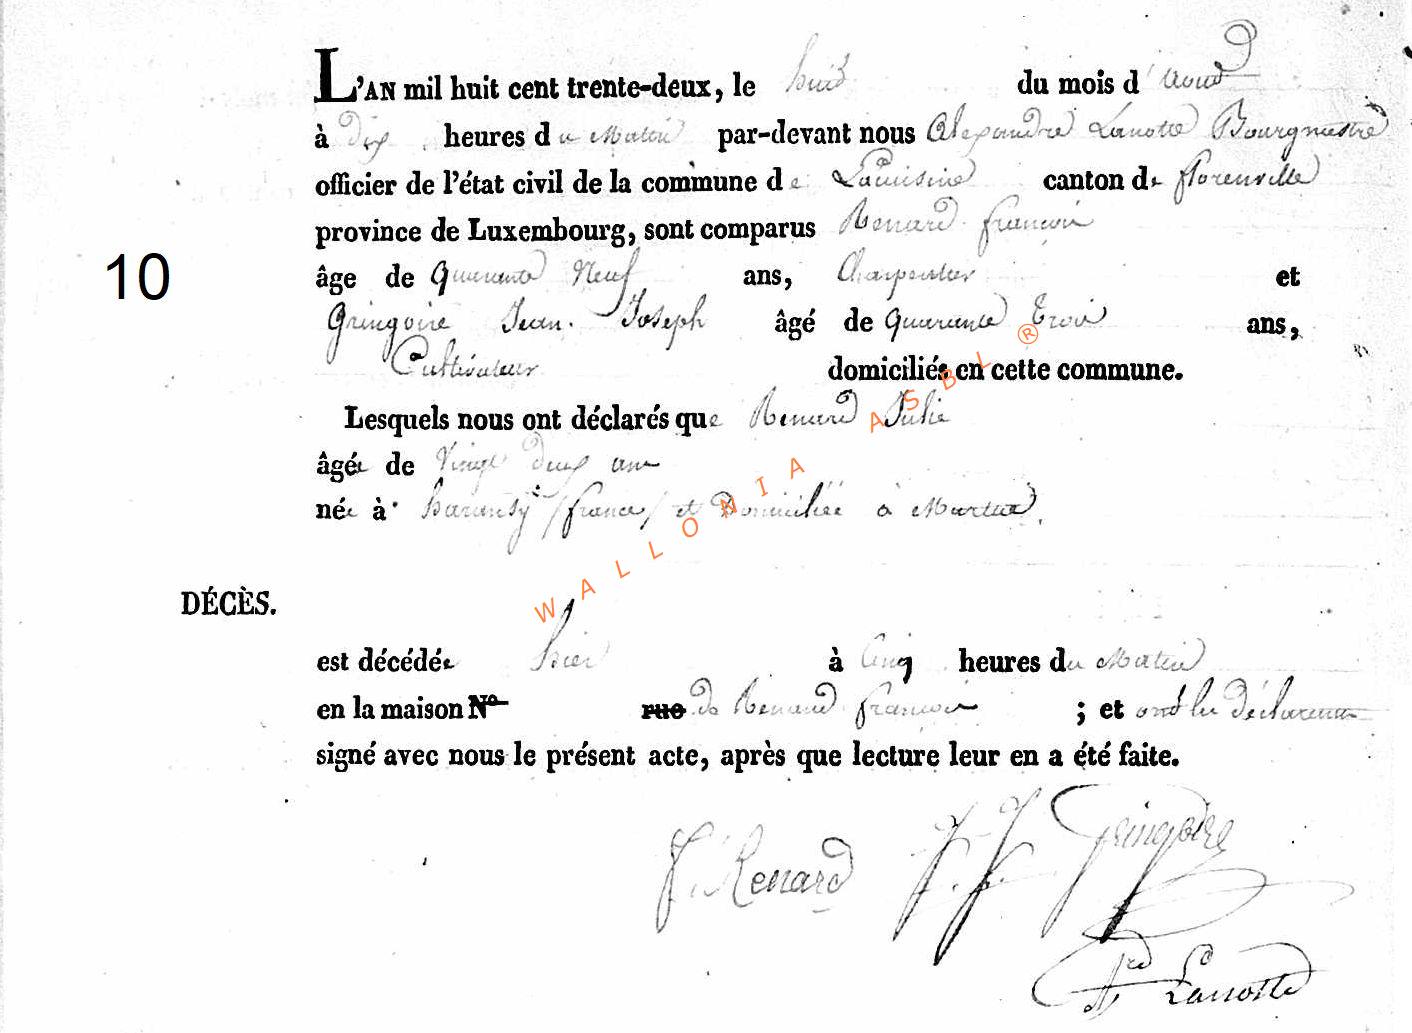 L'AN mil huit cent trente-deux, le huit du mois d'Aout
à Dix heures du Matin par-devant nous Alexandre Lanotte Bourgmestre
officier de l'état civil de la commune de Lacuisine canton de florenville
province de Luxembourg, sont comparus Renard françois
10
âge de Quarante Neuf ans, Charpentier et
Gringoire Jean Joseph âgé de Quarante Trois ans,
Cultivateur domiciliés en cette commune.
Lesquels nous ont déclarés que Renard Julie
âgée de Vingt deux ans
née à (france) et Domiciliée à Martué
WALLONIA ASBL ®
DÉCÈS.
est décédée hier à Cinq heures du Matin
en la maison No rue de Renard françois ; et ont les déclarants
signé avec nous le présent acte, après que lecture leur en a été faite.
f. Renard J. J. Gringoire
Adre Lanotte